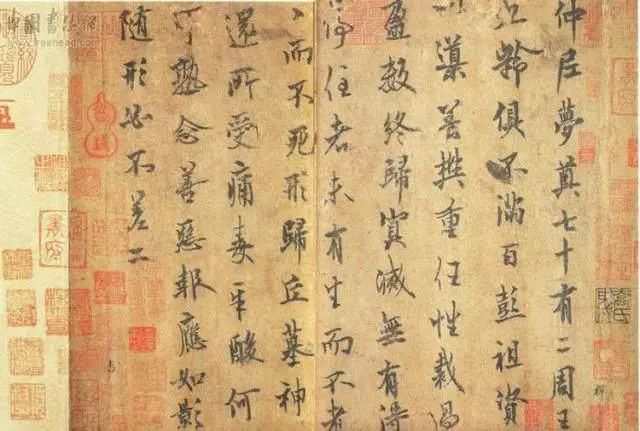 中國書法網
仲尼夢奠七十有二周王
九齡俱不滿百彭祖資
導養樊重任性裁過
盈數終歸冥滅無有得
停住者未有生而不老
而不死形歸丘墓神
還所受痛毒辛酸何
可熟念善惡報應如影
隨形必不差二